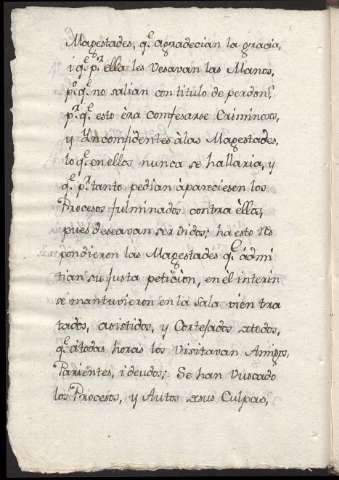 Magestades, q.e agradecian la gracia,
i q.e p.r ella les Vesavan las Manos,
p.o q.e no salian con titulo de perdon,
p.r q.e esto èra comfesarse Criminoso,
y Ynconfidentes à las Magestades,
lo q.e en ellos nunca se hallaria, y
q.e p.r tanto pedian àpareciesen los
Procesos fulminados contra èllos,
pues deseavan ser vidos; ha esto Res
pondieron las Magestades q.e àdmi
tian su justa peticion, en el interin
se mantuvieron en la sala vien tra
tados, asistidos, y Cortejados xtodos,
q.e à todas horas los Visitavan Amigos,
Parientes, i deudos; Se han Vuscado
los Procesos, y Autos xsus Culpas,